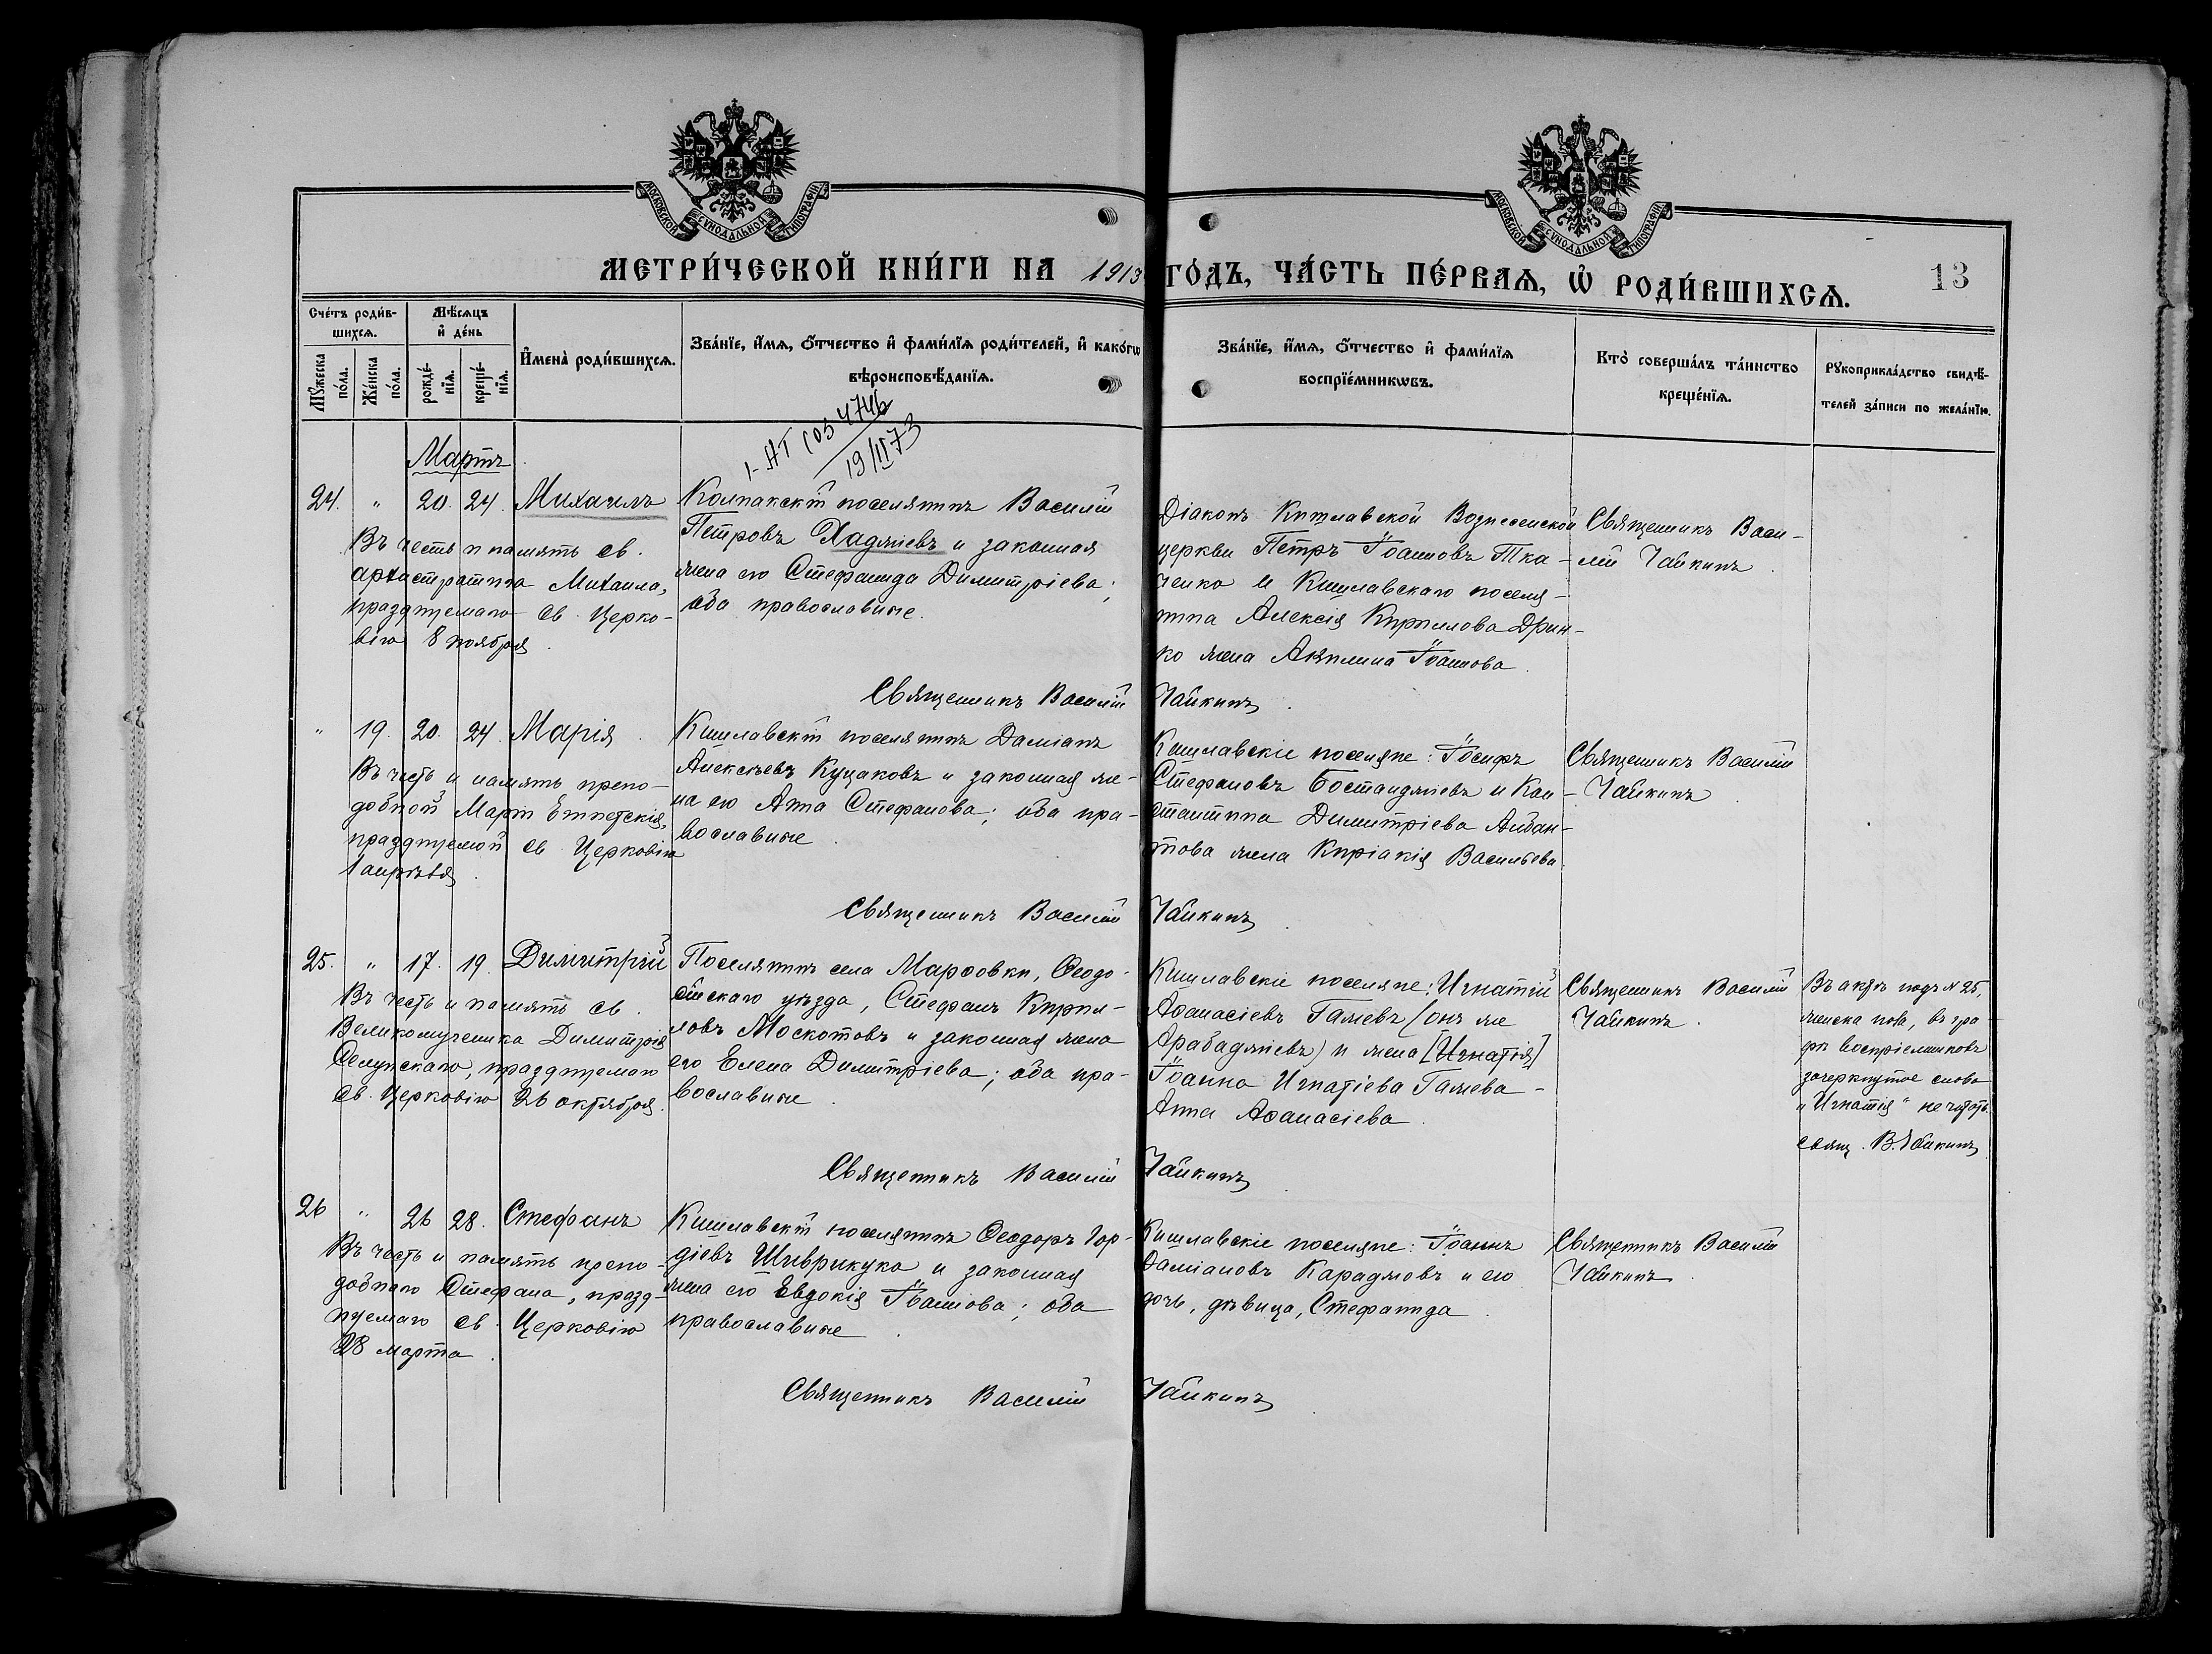 МОСКОВСКОЙ СѴНОДАЛЬНОЙ ТИПОГРАФІИ
МОСКОВСКОЙ СѴНОДАЛЬНОЙ ТИПОГРАФІИ
МЕТРИ́ЧЕСКОЙ КНИ́ГИ НА 1913 ГО́ДЪ, ЧА́СТЬ ПЕ́РВАѦ, Ѡ҆ РОДИ́ВШИХСѦ.
13
Сче́тъ роди́в-
шихсѧ.
Мꙋ́жеска
по́ла.
Же́нска
по́ла.
Мѣ́сѧцъ
и҆ де́нь
рожде́-
нїѧ.
креще́-
нїѧ.
И҆мена̀ роди́вшихсѧ.
Зва́нїе, и҆́мѧ, ѻ҆́тчество и҆ фами́лїѧ роди́телей, и҆ како́гѡ
вѣроисповѣ́данїѧ.
Зва́нїе, и҆́мѧ, ѻ҆́тчество и҆ фами́лїѧ
воспрїе́мникѡвъ.
Кто̀ соверша́лъ та́инство
креще́нїѧ.
Рꙋкоприкла́дство свидѣ́-
телей за́писи по жела́нїю.
19/II 73
Мартъ
24. " 20. 24. Михаилъ
Въ честь и память св.
архистратига Михаила,
празднуемаго св. Церко-
вію 8 ноября.
Колпакскій поселянинъ Василій
Петровъ Хаджіевъ и законная
жена его Стефанида Димитріева;
оба православные.
Діаконъ Кишлавской Вознесенской
церкви Петръ Іоанновъ Тка-
ченко и Кишлавскаго поселя-
нина Алексія Кириллова Дрин-
ко жена Акилина Іоаннова.
Священникъ Васи-
лій Чайкинъ.
Священникъ Василій Чайкинъ.
" 19. 20. 24. Марія.
Въ честь и память препо-
добной Маріи Египетскія,
празднуемой св. Церковію
1 апрѣля.
Кишлавскій поселянинъ Даміанъ
Алексѣевъ Куцаковъ и законная же-
на его Анна Стефанова; оба пра-
вославные.
Кишлавскіе поселяне: Іосифъ
Стефановъ Бостанджіевъ и Кон-
стантина Димитріева Айван-
това жена Киріакія Васильева.
Священникъ Василій
Чайкинъ.
Священникъ Василій Чайкинъ.
25. " 17. 19. Димитрій
Въ честь и память св.
Великомученика Димитрія
Селунскаго, празднуемаго
св. Церковію 26 октября.
Поселянинъ села Марфовки, Ѳеодо-
сійскаго уѣзда, Стефанъ Кирил-
ловъ Москотовъ и законная жена
его Елена Димитріева; оба пра-
вославные.
Кишлавскіе поселяне: Игнатій
Аѳанасіевъ Гамевъ (онъ же
Арабаджіевъ) и жена [Игнатія]
Іоанна Игнатіева Гамева -
Анна Аѳанасіева.
Священникъ Василій
Чайкинъ.
Въ актѣ подъ № 25,
женска пола, въ гра-
фѣ воспріемниковъ
зачеркнутое слово
"Игнатія" не читать.
свящ. В. Чайкинъ
Священникъ Василій Чайкинъ.
26 " 26 28. Стефанъ
Въ честь и память препо-
добнаго Стефана, празд-
нуемаго св. Церковію
28 марта.
Кишлавскій поселянинъ Ѳеодоръ Гор-
діевъ Шиврикука и законная
жена его Евдокія Іоаннова; оба
православные.
Кишлавскіе поселяне: Іоаннъ
Даміановъ Караджовъ и его
дочь, дѣвица, Стефанида.
Священникъ Василій
Чайкинъ.
Священникъ Василій Чайкинъ.